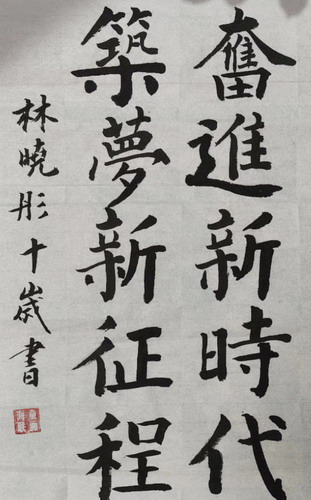 奮進新時代
築夢新征程
林曉彤十歲書